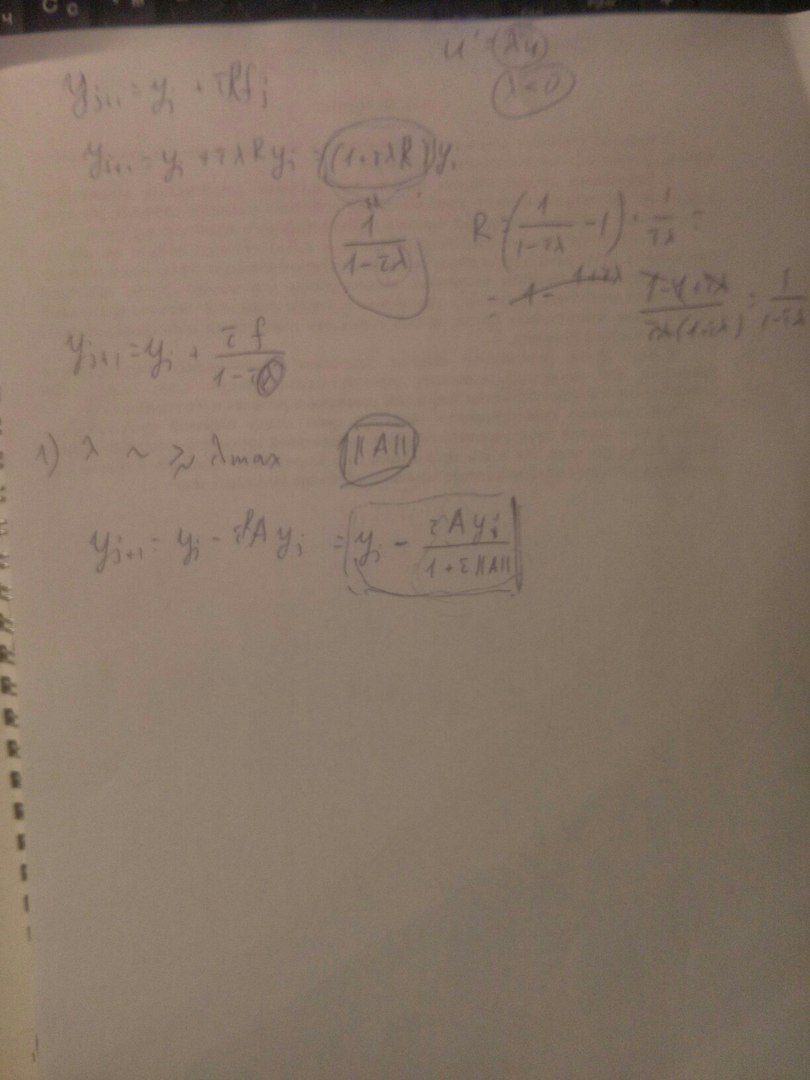 u' = λu
λ < 0
y_{j+1} = y_j + τRf_j
y_{j+1} = y_j + τλRy_j = (1+τλR)y_j
"
1/(1-τλ)
R = (1/(1-τλ) - 1) · 1/(τλ) =
= (1-1+τλ)/(τλ(1-τλ)) = 1/(1-τλ)
y_{j+1} = y_j + τf/(1-τλ)
1) λ ~ ≳ λmax ||A||
y_{j+1} = y_j - τRAy_j = y_j - τAy_j/(1+τ||A||)